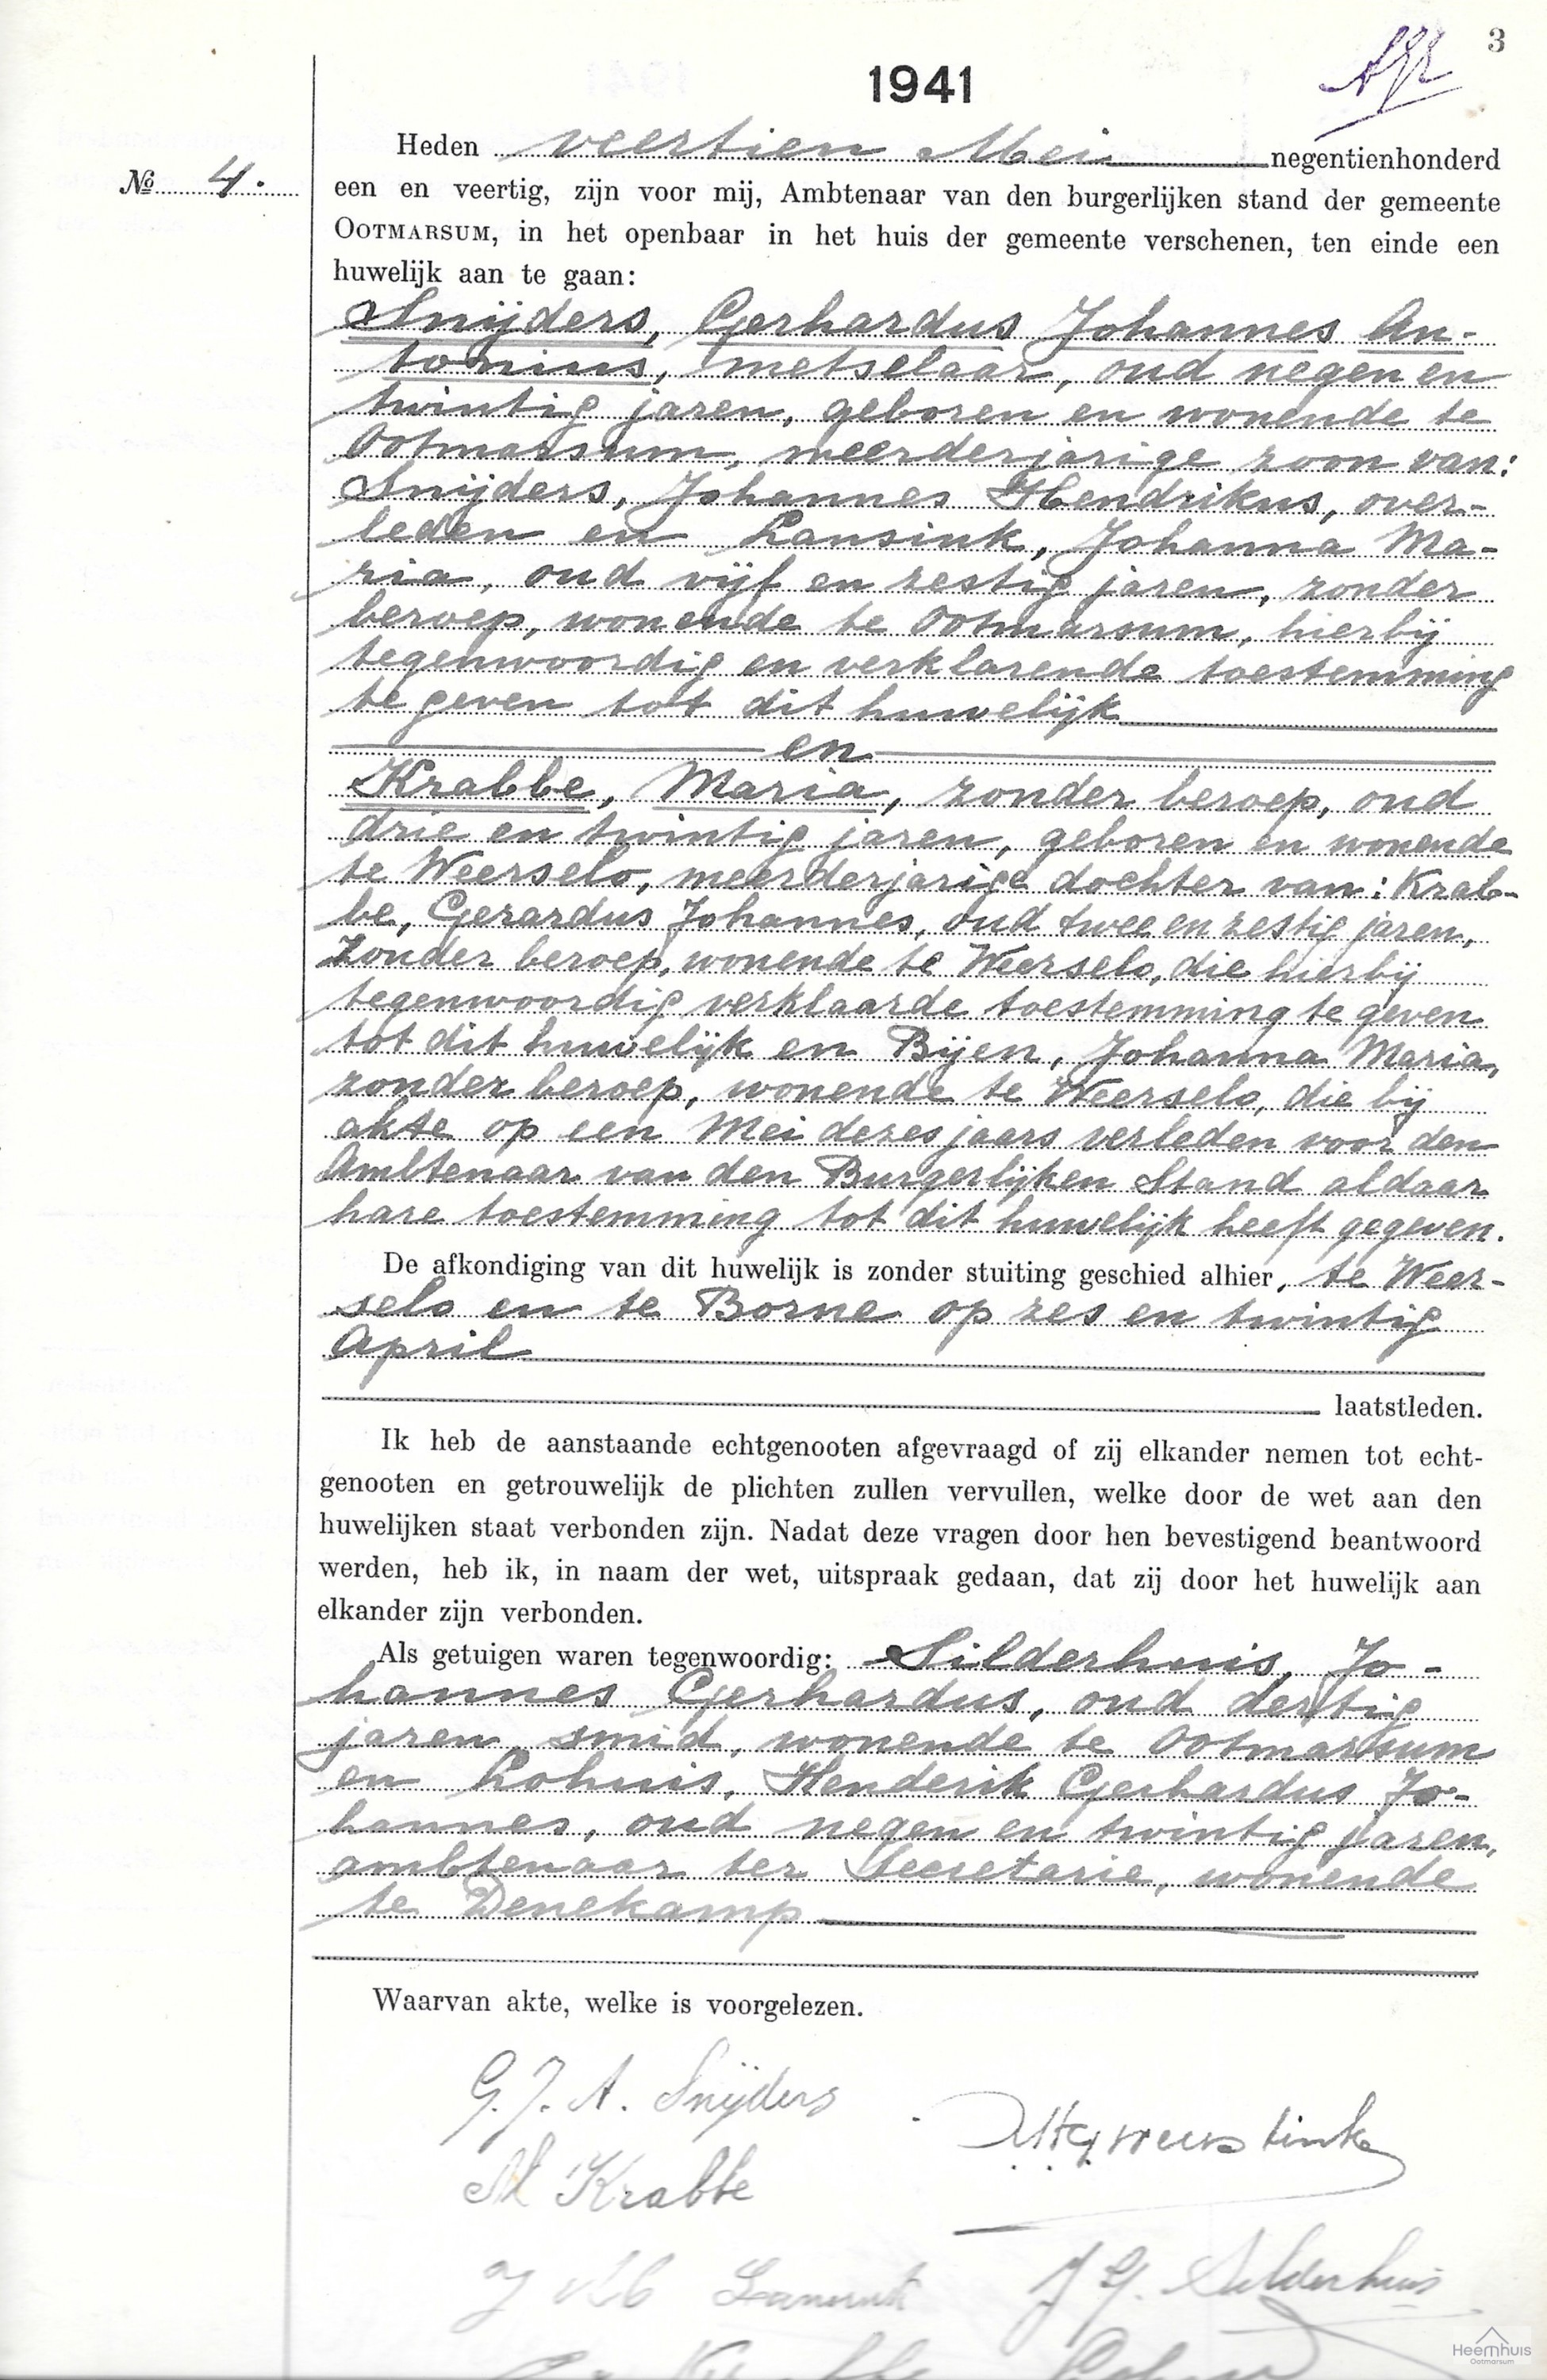 3
1941
Heden veertien Mei negentienhonderd
№ 4.
een en veertig, zijn voor mij, Ambtenaar van den burgerlijken stand der gemeente
OOTMARSUM, in het openbaar in het huis der gemeente verschenen, ten einde een
huwelijk aan te gaan:
Snijders, Gerhardus Johannes An-
tonius, metselaar, oud negen en
twintig jaren, geboren en wonende te
Ootmarsum, meerderjarige zoon van:
Snijders, Johannes Hendrikus, over-
leden en Lansink, Johanna Ma-
ria, oud vijf en zestig jaren, zonder
beroep, wonende te Ootmarsum, hierbij
tegenwoordig en verklarende toestemming
te geven tot dit huwelijk
en
Krabbe, Maria, zonder beroep, oud
drie en twintig jaren, geboren en wonende
te Weerselo, meerderjarige dochter van: Krab-
be, Gerardus Johannes, oud twee en zestig jaren,
zonder beroep, wonende te Weerselo, die hierbij
tegenwoordig verklaarde toestemming te geven
tot dit huwelijk en Bijen, Johanna Maria,
zonder beroep, wonende te Weerselo, die bij
akte op een Mei dezes jaars verleden voor den
Ambtenaar van den Burgerlijken Stand aldaar
hare toestemming tot dit huwelijk heeft gegeven.
De afkondiging van dit huwelijk is zonder stuiting geschied alhier, te Weer-
selo en te Borne op zes en twintig
April
laatstleden.
Ik heb de aanstaande echtgenooten afgevraagd of zij elkander nemen tot echt-
genooten en getrouwelijk de plichten zullen vervullen, welke door de wet aan den
huwelijken staat verbonden zijn. Nadat deze vragen door hen bevestigend beantwoord
werden, heb ik, in naam der wet, uitspraak gedaan, dat zij door het huwelijk aan
elkander zijn verbonden.
Als getuigen waren tegenwoordig: Silderhuis, Jo-
hannes Gerhardus, oud dertig
jaren, smid, wonende te Ootmarsum
en Lohuis, Henderik Gerhardus Jo-
hannes, oud negen en twintig jaren,
ambtenaar ter Secretarie, wonende
te Denekamp
Waarvan akte, welke is voorgelezen.
G. J. A. Snijders
M Krabbe
J M Lansink J G. Silderhuis
Heemhuis
Ootmarsum